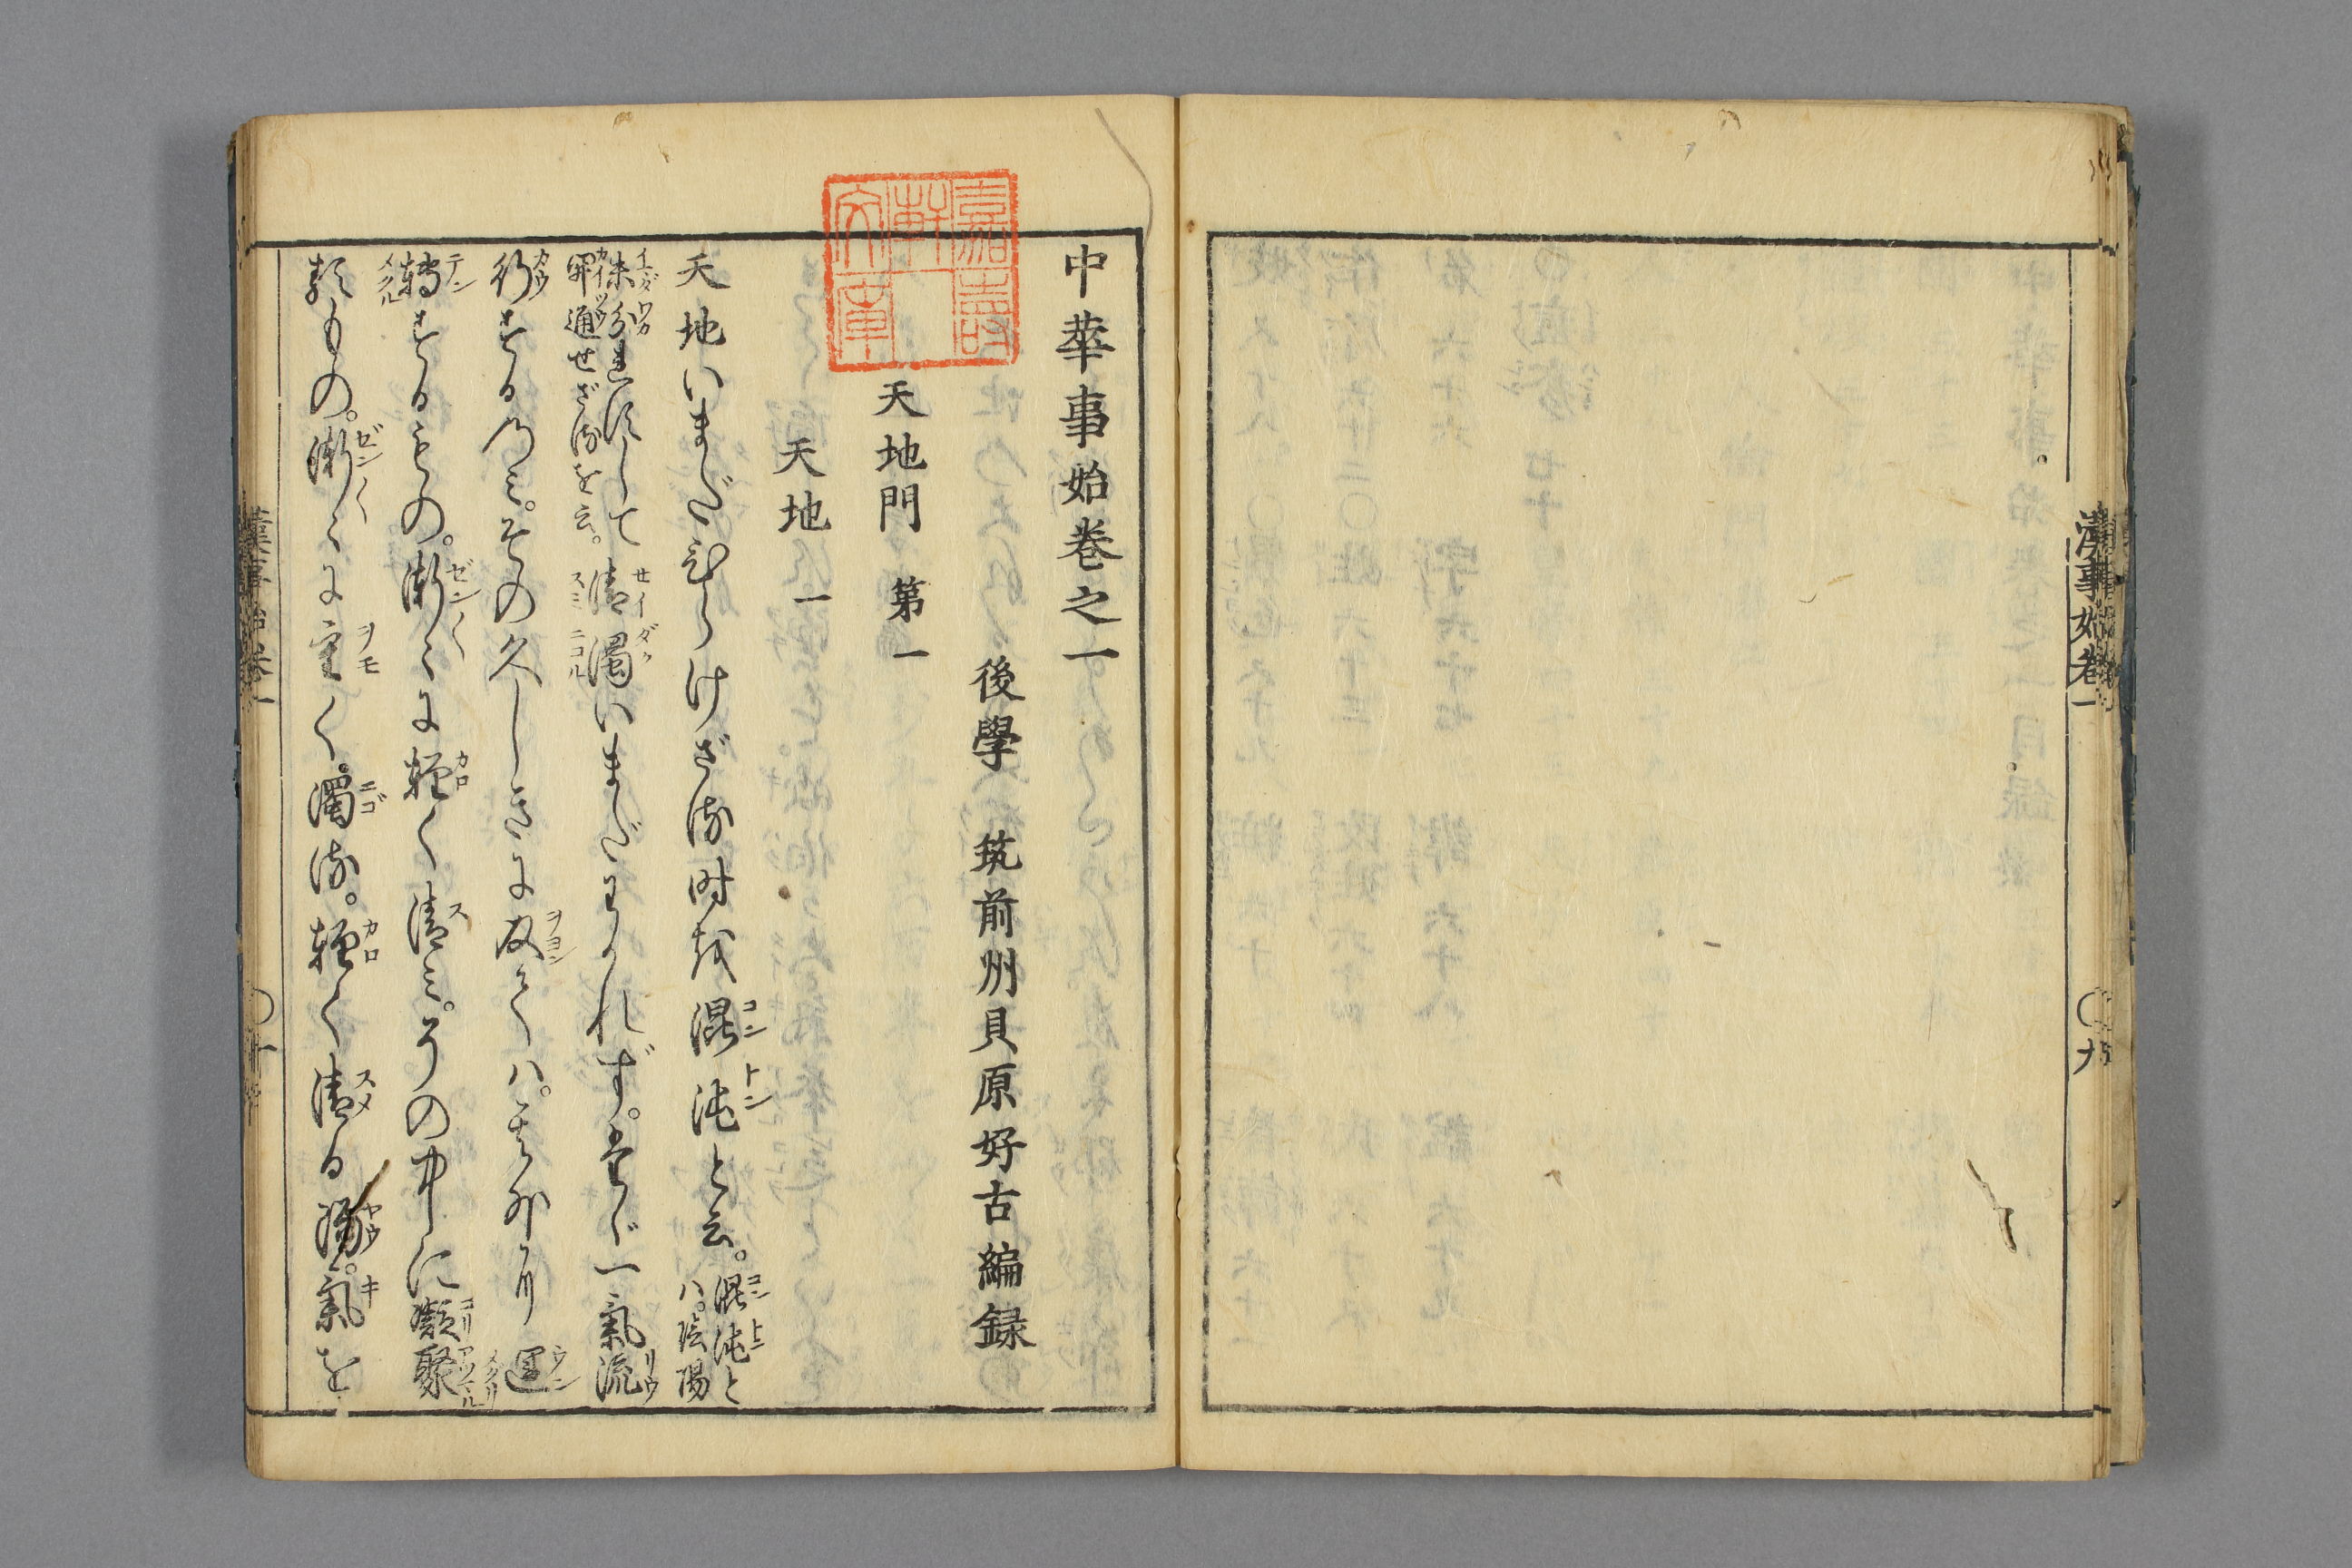 漢事始卷一
〇九
中華事始卷之一
後學 筑前州貝原好古編録
天地門 第一
天地 一
嘉壽軒文庫
天地いまだひらけざる時を混沌と云。混沌とハ。陰陽
未分れずして清濁いまだわかれず。たゞ一氣流
開通せざるを云。
行するのミ。その久しきに及てハ。其外より運
轉するもの。漸〻に輕く清ミ。その中に凝聚
類もの。漸〻に重く。濁る。輕く清る陽。氣を
漢事始卷一
〇十